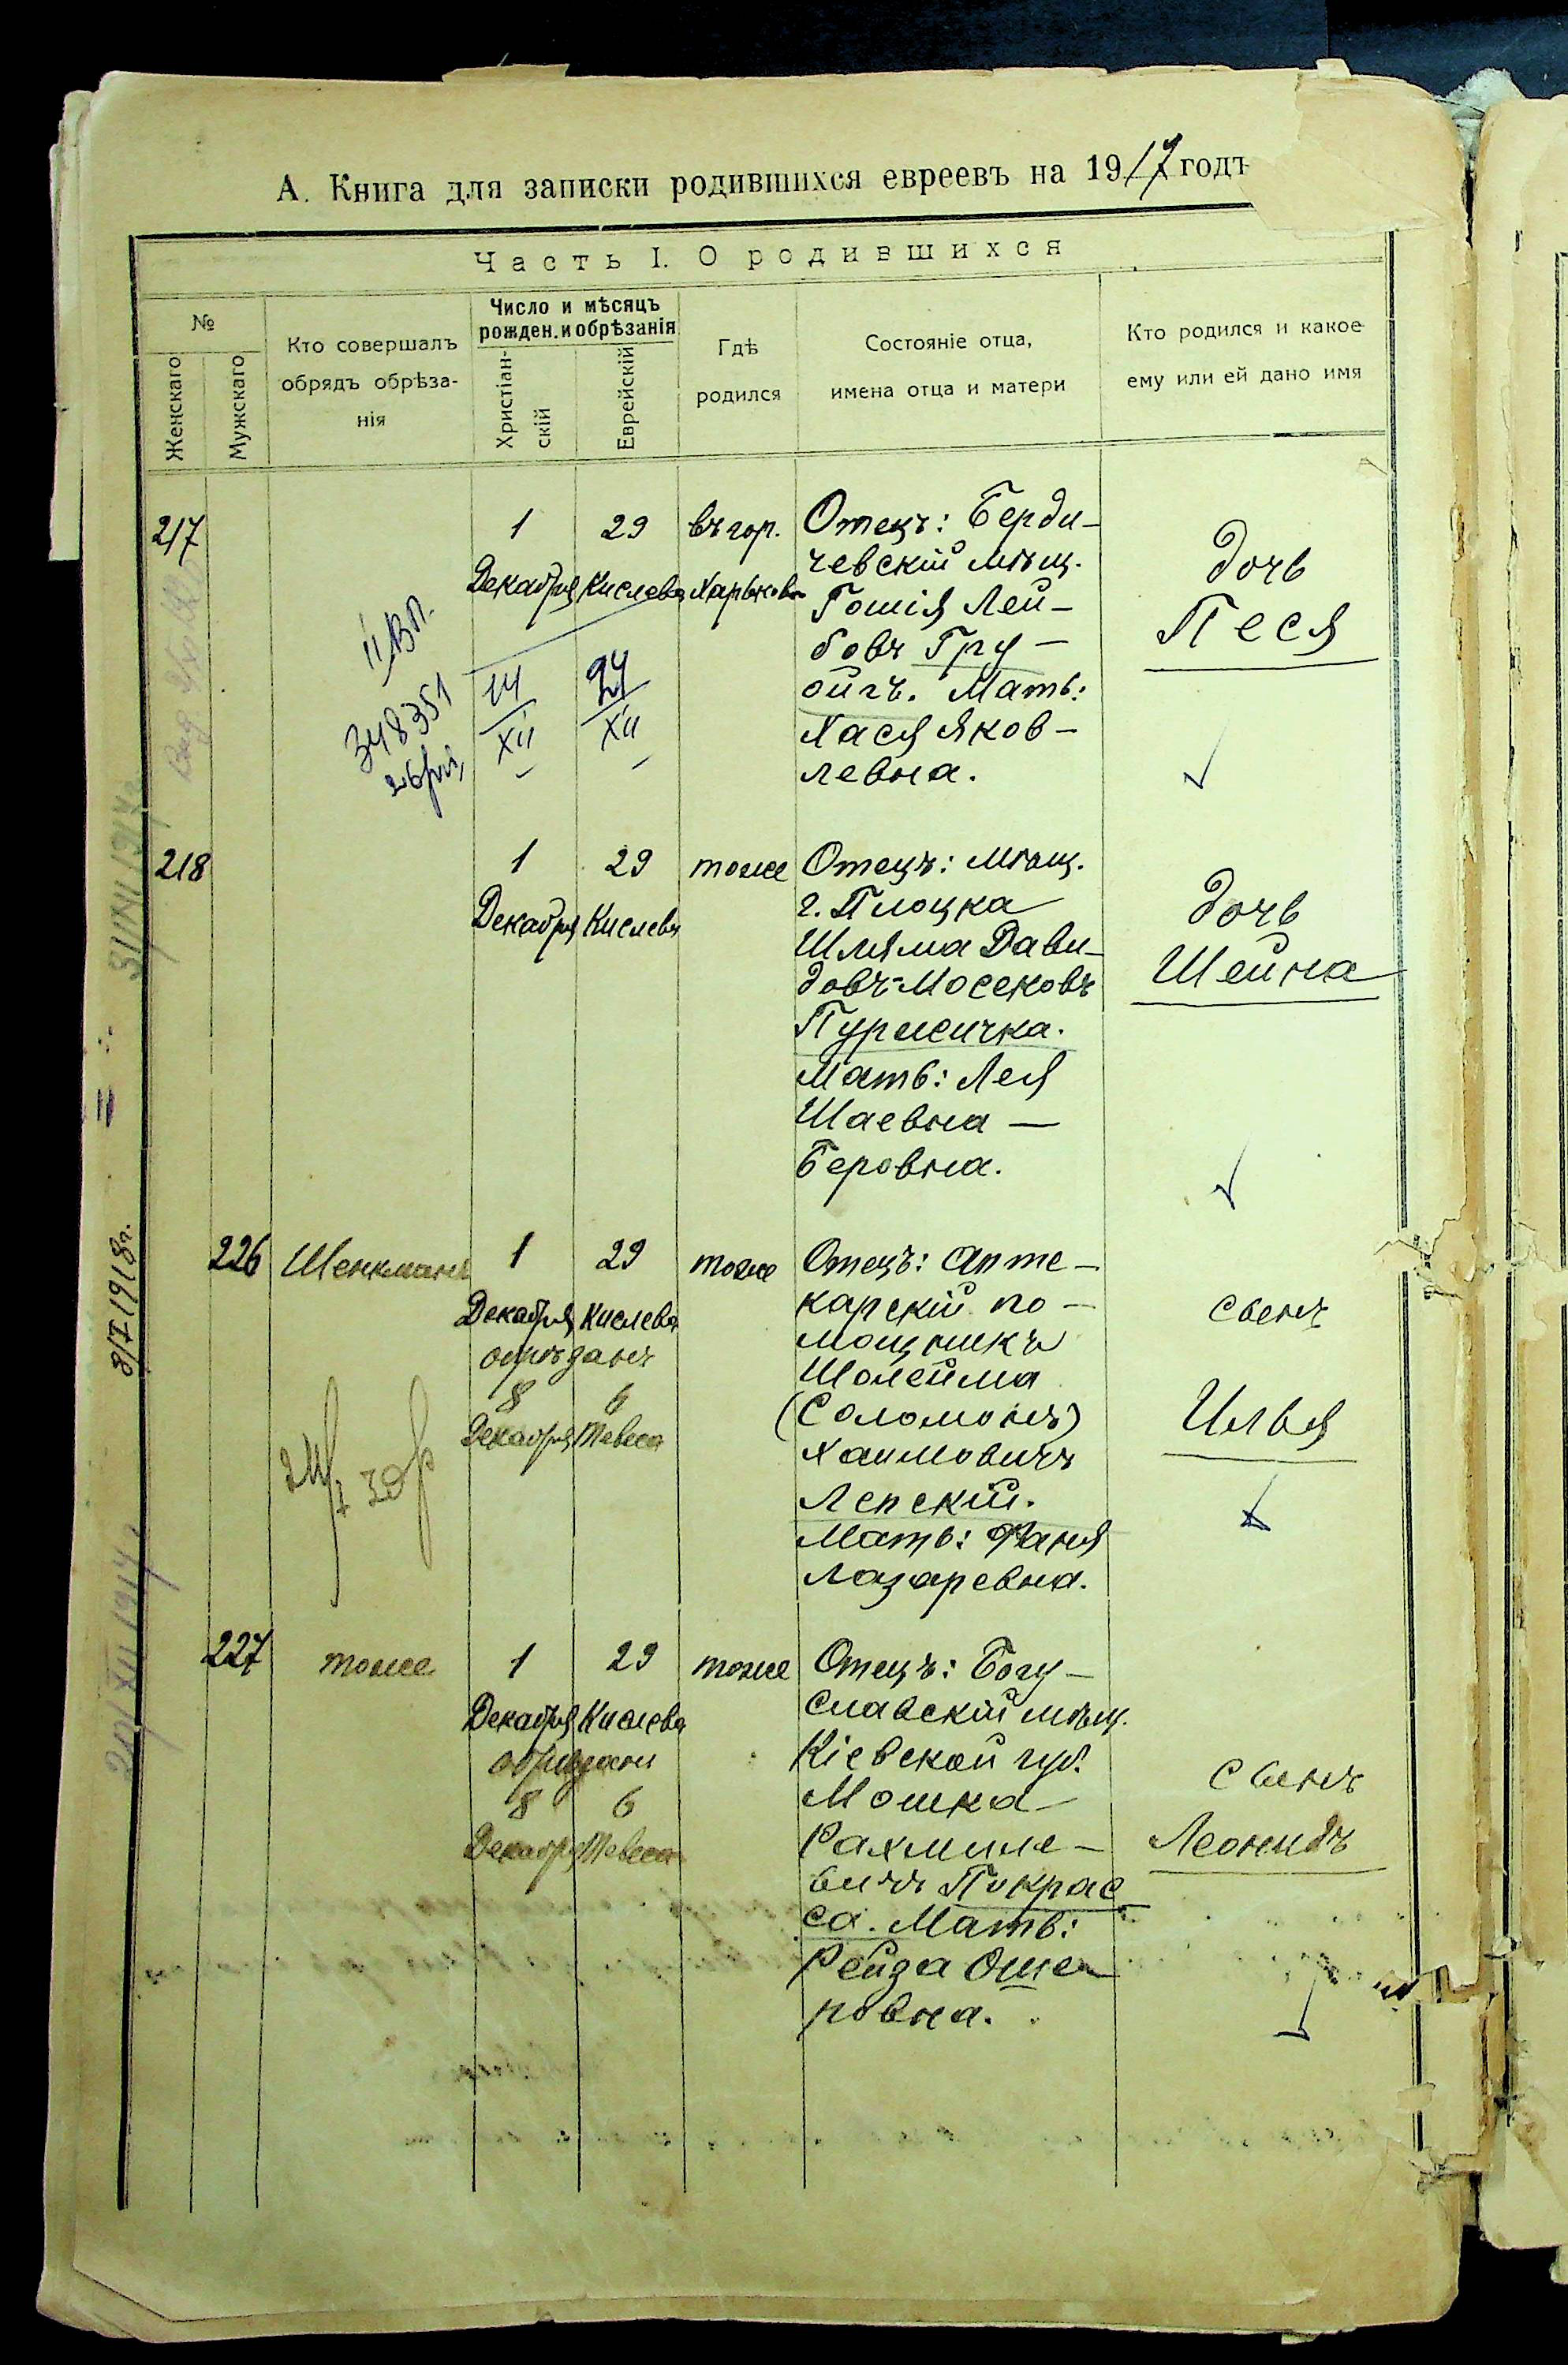 А. Книга для записки родившихся евреевъ на 1917 годъ
Часть I. О родившихся
№
Женскаго
Мужскаго
Кто совершалъ
обрядъ обрѣза-
нія
Число и мѣсяцъ
рожден. и обрѣзанія
Христіан-
скій
Еврейскій
Гдѣ
родился
Состояніе отца,
имена отца и матери
Кто родился и какое
ему или ей дано имя
217
1
Декабря
29
Кислева
въ гор.
Харьковѣ
Отецъ: Берди-
чевскій мѣщ.
Гошія Лей-
бовъ Гру-
ойгъ. Мать:
Хася Яков-
левна.
дочь
Песя
348351
14
XII
24
XII
218
1
Декабря
29
Кислева
тоже
Отецъ: мѣщ.
г. Плоцка
Шляма Дави-
довъ-Мосековъ
Пурмичка.
Мать: Лея
Шаевна —
Беровна.
дочь
Шейна
226
Шенкманъ
1
Декабря
29
Кислева
обрѣзанъ
8
Декабря
6
Тевеса
тоже
Отецъ: Апте-
карскій по-
мощникъ
Шолейма
(Соломонъ)
Хаимовичъ
Лепскій.
Мать: Фаня
Лазаревна.
сынъ
Илья
227
тоже
1
Декабря
29
Кислева
обрѣзанъ
8
Декабря
6
Тевеса
тоже
Отецъ: Богу-
славскій мѣщ.
Кіевской губ.
Мошка-
Рахмиле-
вичъ Покрас
са. Мать:
Рейза Оше-
ровна.
сынъ
Леонидъ
8/I 1918г.